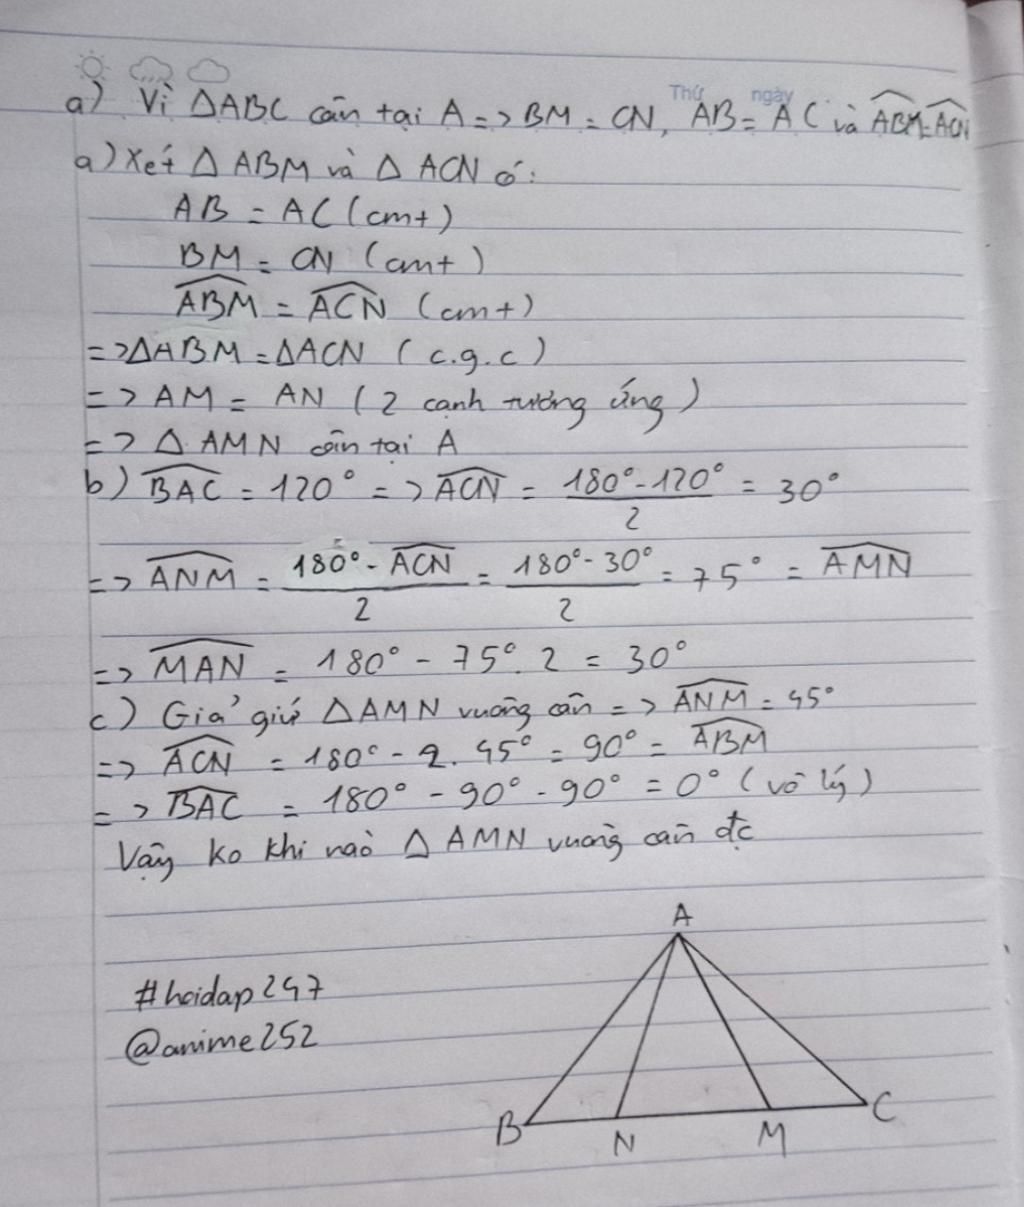 Thứ ngày
a) Vì ΔABC cân tại A => BM = CN, AB = AC và \widehat{ABM} = \widehat{ACN}
a) Xét Δ ABM và Δ ACN có:
AB = AC (cmt)
BM = CN (cmt)
\widehat{ABM} = \widehat{ACN} (cmt)
=> ΔABM = ΔACN (c.g.c)
=> AM = AN (2 cạnh tương ứng)
=> Δ AMN cân tại A
b) \widehat{BAC} = 120° => \widehat{ACN} = \frac{180° - 120°}{2} = 30°
=> \widehat{ANM} = \frac{180° - \widehat{ACN}}{2} = \frac{180° - 30°}{2} = 75° = \widehat{AMN}
=> \widehat{MAN} = 180° - 75°. 2 = 30°
c) Giả giứ ΔAMN vuông cân => \widehat{ANM} = 45°
=> \widehat{ACN} = 180° - 2. 45° = 90° = \widehat{ABM}
=> \widehat{BAC} = 180° - 90° - 90° = 0° (vô lý)
Vậy ko khi nào Δ AMN vuông cân đc
A
#hoidap247
@anime252
B N M C